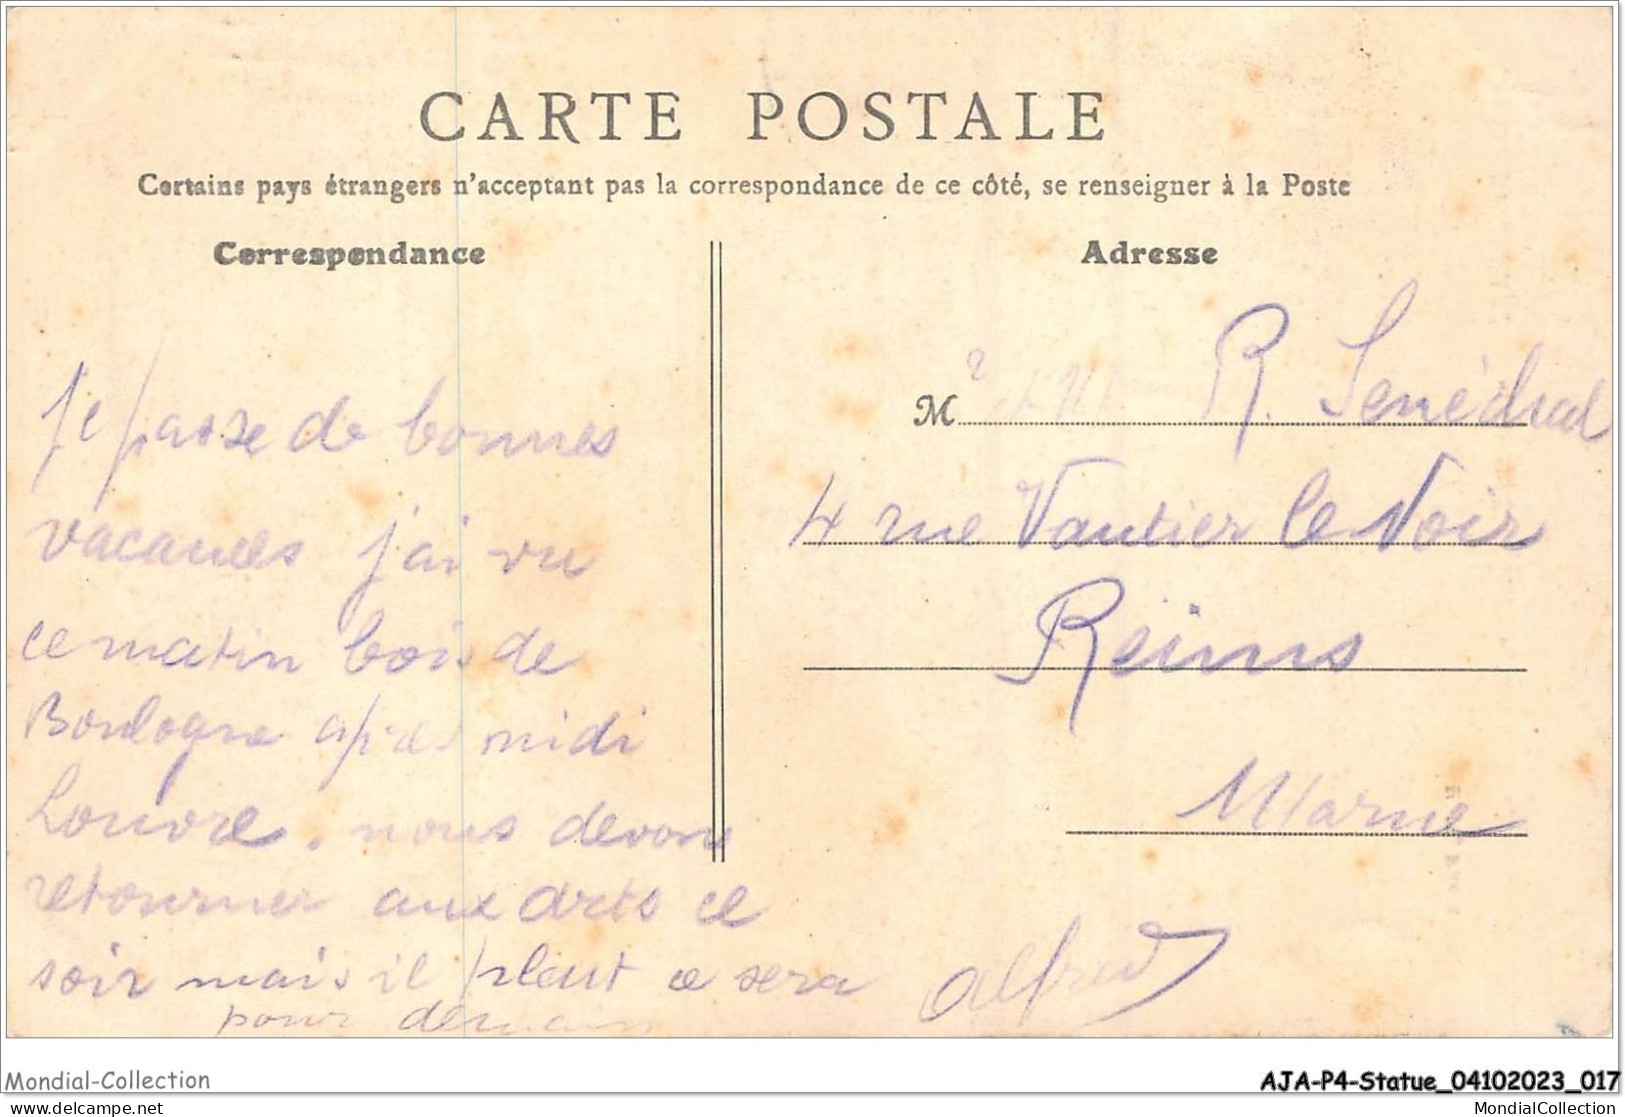 CARTE POSTALE
Certains pays étrangers n'acceptant pas la correspondance de ce côté, se renseigner à la Poste
Correspondance
Adresse
Je passe de bonnes
vacances j'ai vu
ce matin bois de
Boulogne après midi
Louvre. nous devons
retourner aux arts ce
soir mais il pleut ce sera
pour demain
M R. Senéchal
4 rue Vautier le Noir
Reims
Marne
Alfred
Mondial-Collection
AJA-P4-Statue_04102023_017
delcampe.net
MondialCollection